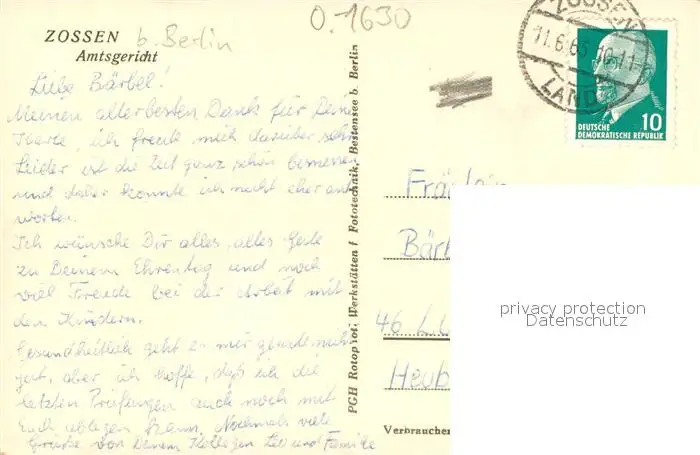 O.1630
ZOSSEN b. Berlin
Amtsgericht
Liebe Bärbel!
Meinen allerbesten Dank für Deine
Karte, ich freute mich darüber sehr
Leider ist die Zeit ganz schön bemessen
und daher konnte ich nicht eher ant
worten.
Ich wünsche Dir alles, alles Gute
zu Deinem Ehrentag und noch
viel Freude bei der Arbeit mit
den Kindern.
Gesundheitlich geht es mir gerade nicht
gut, aber ich hoffe, daß ich die
letzten Prüfungen auch noch mit
Euch ablegen kann. Nochmals viele
Grüße von Deinem Kollegen Leo und Familie
PGH Rotophot, Werkstätten f Fototechnik, Bestensee b. Berlin
ZOSSEN
11.6.65
LAND
10
DEUTSCHE
DEMOKRATISCHE REPUBLIK
Fräulein
Bärb
46
Heub
Verbraucher
privacy protection
Datenschutz